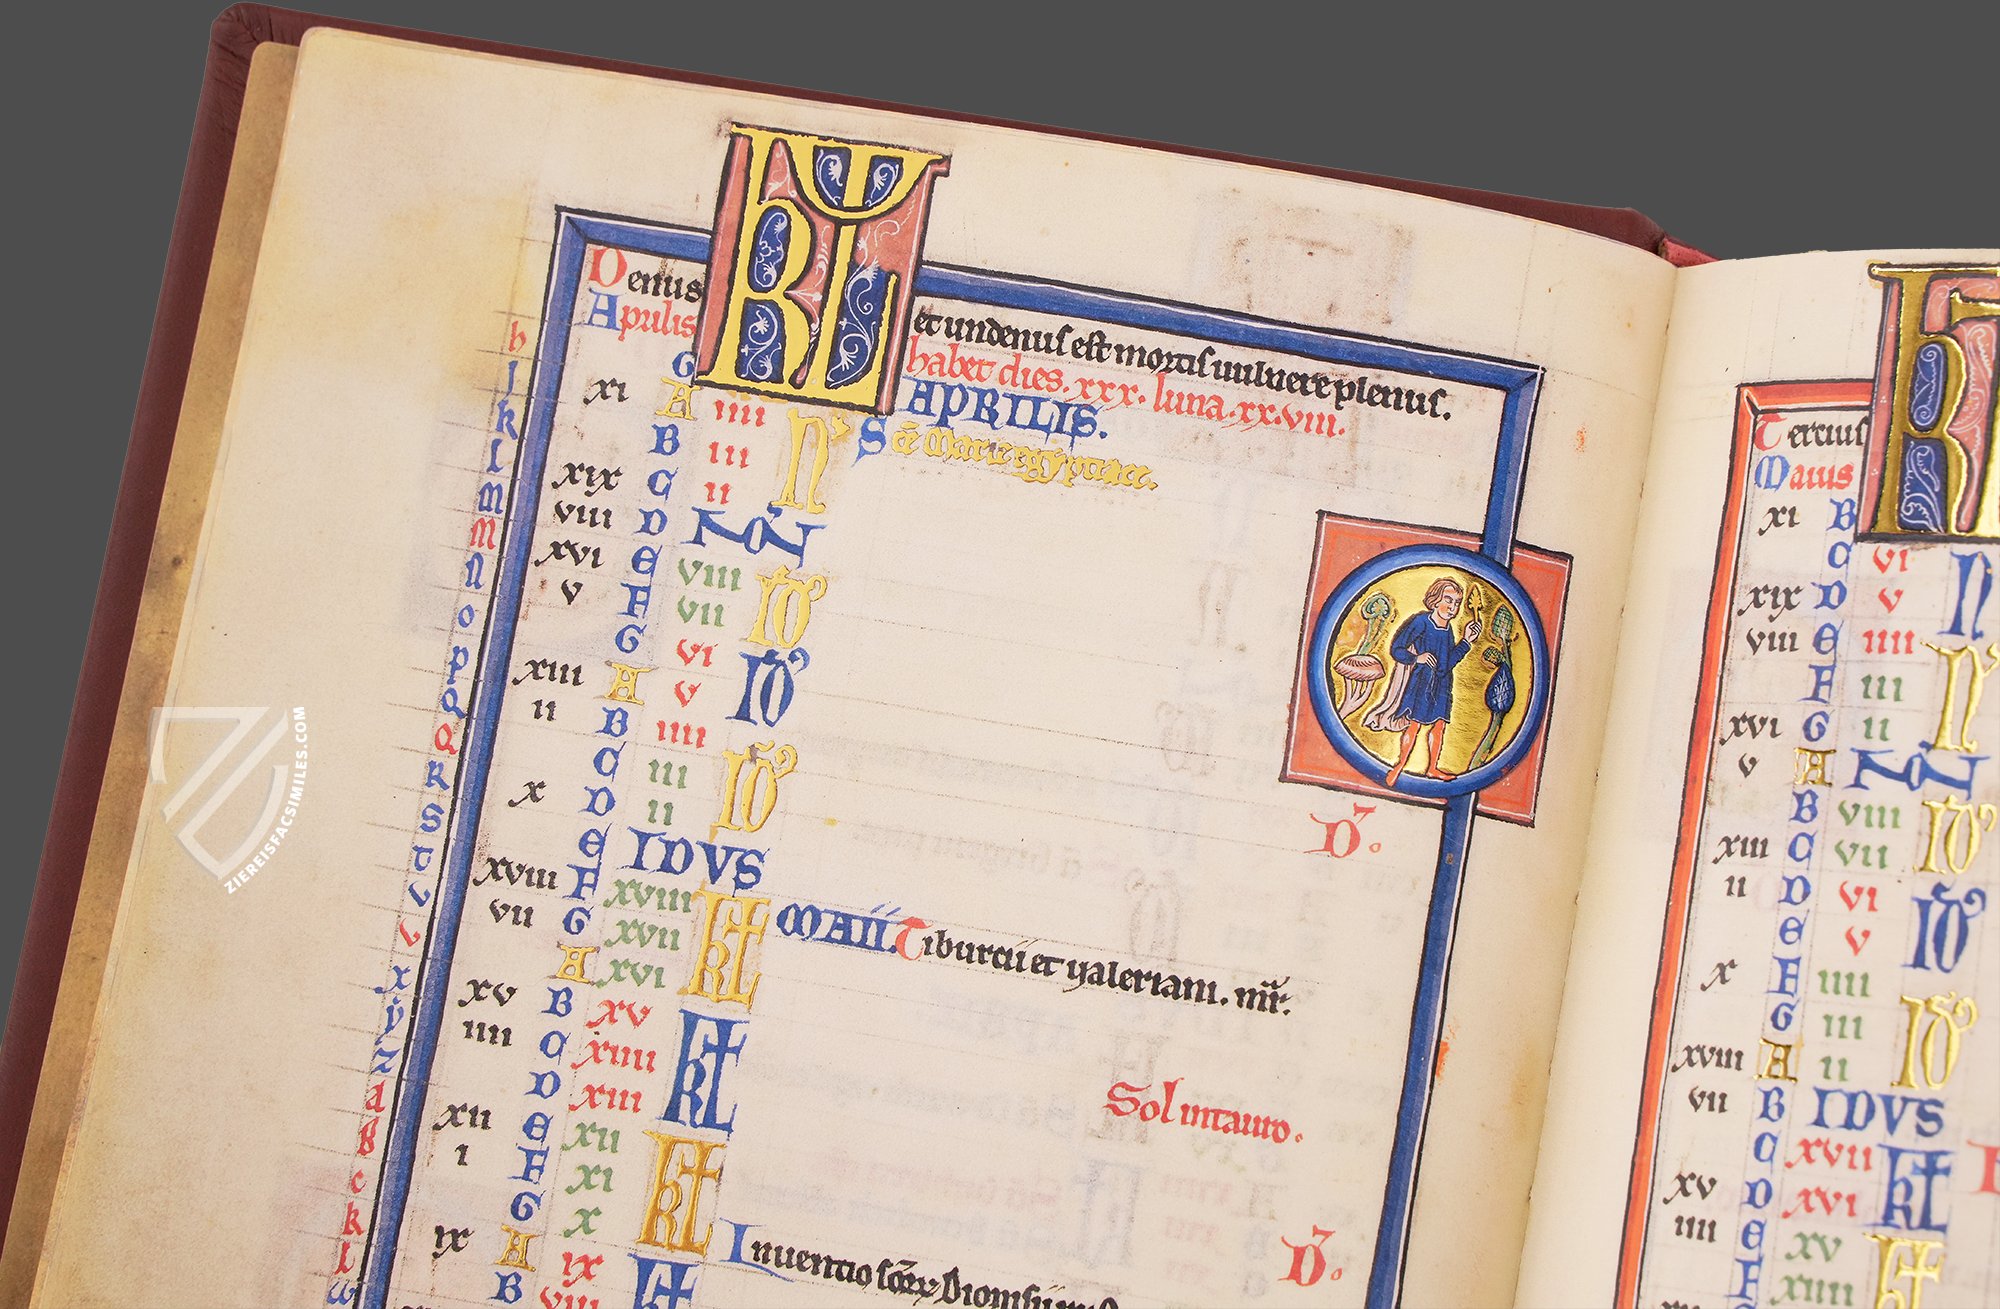 Denus KL et undenus est mortis uulnere plenus.
Aprilis habet dies. xxx. luna. xx.viii.
h G APRILIS.
I xi A iiii N S ce Marie egyptiace.
k B iii
l xix C ii
m viii D NON
M xvi E viii ID
N v F vii
o G vi ID
p xiii A v
Q ii B iiii
Q C iii ID
R x D ii
S E IDVS
t xviii F xviii KL MAII. Tiburcii et ualeriani. mr.
v vii G xvii
v A xvi
x xv B xv KL
y iiii C xiiii
z D xiii Sol in tauro.
A xii E xii KL
B i F xi
c G x
k ix A ix KL Inuentio scor Dionisii
l B viii
D.
D.
Tercius KL
Maius
xi B
C vi N
xix D v
viii E iiii
F iii N
xvi G ii
v A NON
B viii ID
xiii C vii
ii D vi ID
E v
x F iiii
G iii ID
xviii A ii
vii B IDVS
C xvii KL
xv D xvi
iiii E xv
F xiiii
ZIEREISFACSIMILES.COM